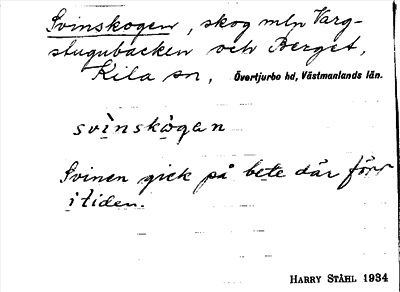 Svinskogen, skog mlp Varg-
stugubacken och Berget,
Kila sn, Övertjurbo hd, Västmanlands län.
svìnskò̀gan
Svinen gick på bete där förr
i tiden.
HARRY STÅHL 1934